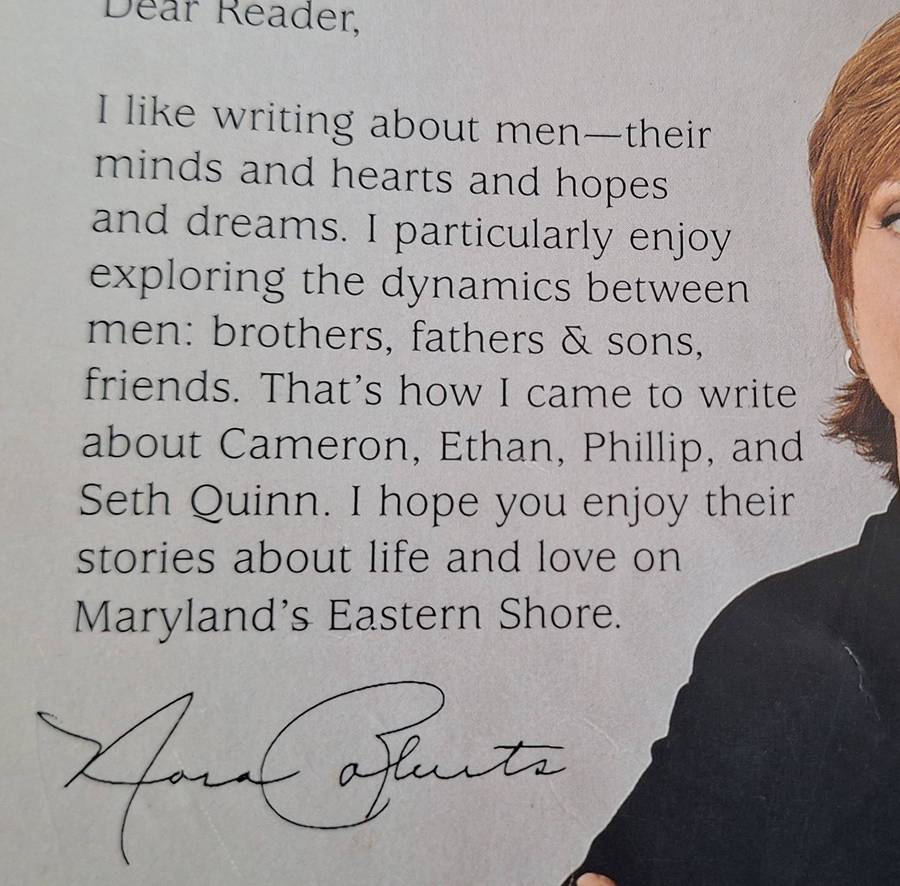 Dear Reader,
I like writing about men—their
minds and hearts and hopes
and dreams. I particularly enjoy
exploring the dynamics between
men: brothers, fathers & sons,
friends. That's how I came to write
about Cameron, Ethan, Phillip, and
Seth Quinn. I hope you enjoy their
stories about life and love on
Maryland's Eastern Shore.
Nora Roberts